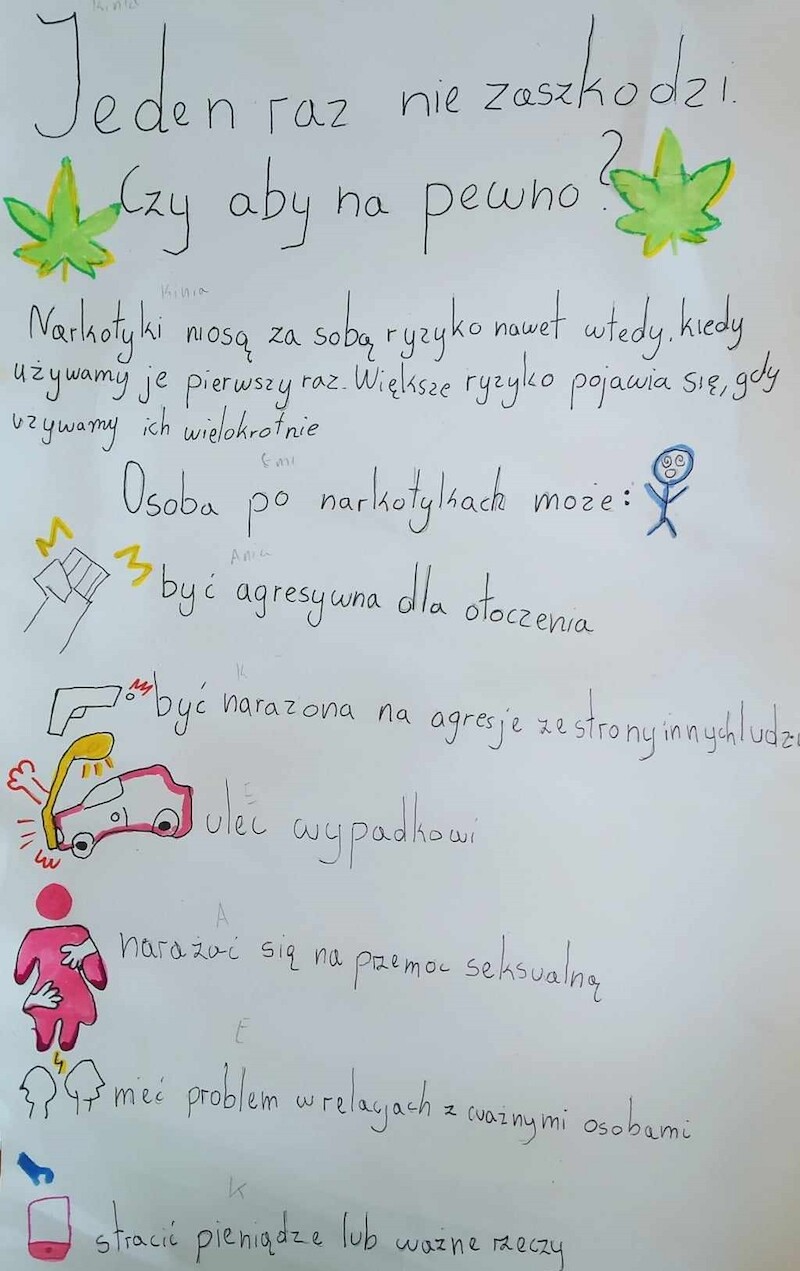 Kinia
Jeden raz nie zaszkodzi.
Czy aby na pewno?
Kinia
Narkotyki niosą za sobą ryzyko nawet wtedy, kiedy
używamy je pierwszy raz. Większe ryzyko pojawia się, gdy
używamy ich wielokrotnie
Emi
Osoba po narkotykach może:
Ania
być agresywna dla otoczenia
K
być narażona na agresje ze strony innych ludzi
E
ulec wypadkowi
A
narażać się na przemoc seksualną
E
mieć problem w relacjach z ważnymi osobami
K
stracić pieniądze lub ważne rzeczy